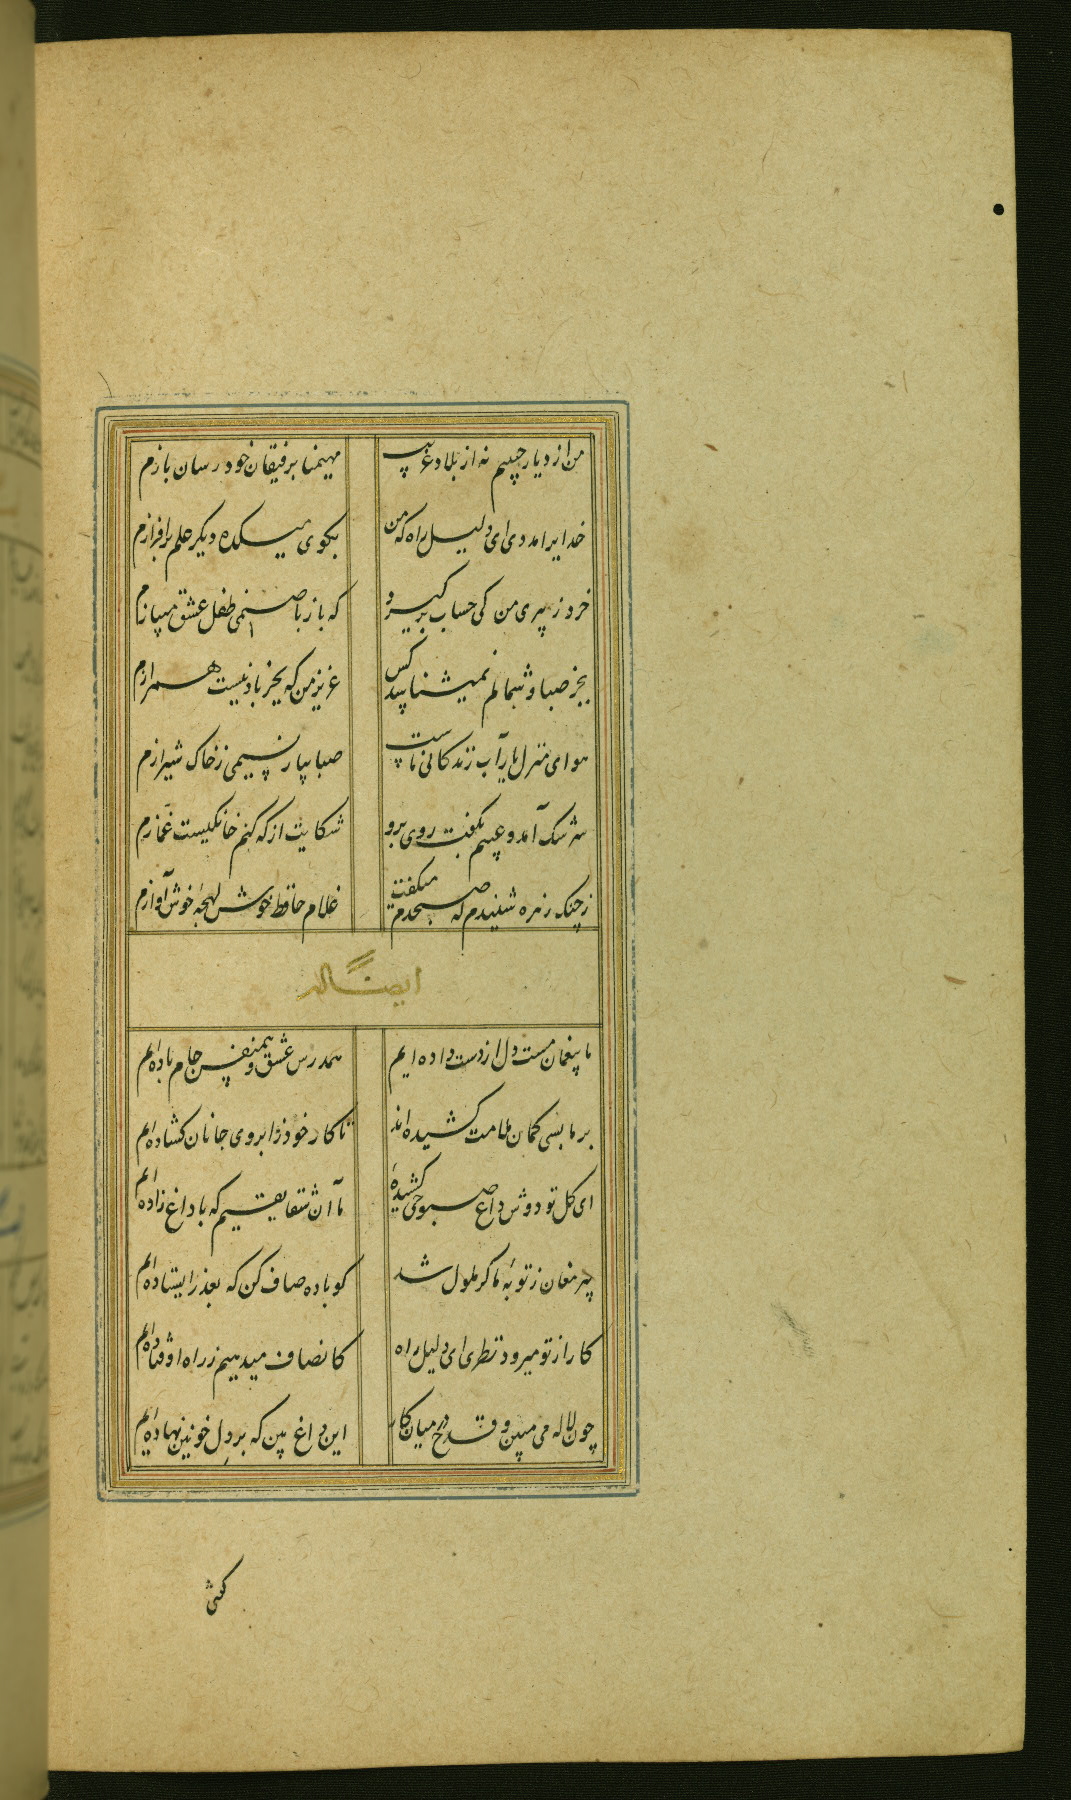 من از دیار حبیبم نه از بلاد غریب مهیمنا برفیقان خود رسان بازم
خدایرا مددی ای دلیل راه که من بکوی میکده دیکر علم برافرازم
خرد ز پیری من کی حساب برکیرد که باز با صنمی طفل عشق میبازم
بجز صبا و شمالم نمیشناسد کس عزیز من که بجز باد نیست همرازم
هوای منزل یار آب زندکانی ماست صبا بیار نسیمی ز خاک شیرازم
سرشک آمد و عیبم بکفت روی بروی شکایت از که کنم خانکیست غمازم
ز چنک زهره شنیدم که صبحدم میکفت غلام حافظ خوش لهجهٔ خوش آوازم
ایضاً له
ما پیغمان مست دل از دست داده ایم همدرس عشق و همنفس جام باده ایم
بر ما بسی کمان ملامت کشیده اند تا کار خود ز ابروی جانان کشاده ایم
ای کل تو دوش داغ صبوحی کشیدهٔ ما آن شقایقیم که با داغ زاده ایم
پیر مغان ز توبهٔ ما کر ملول شد کو باده صاف کن که بعذر ایستاده ایم
کار از تو میرود نظری ای دلیل راه کانصاف میدهیم ز راه اوفتاده ایم
چون لاله می مبین و قدح میان کار این داغ بین که بر دل خونین نهاده ایم
کفتی